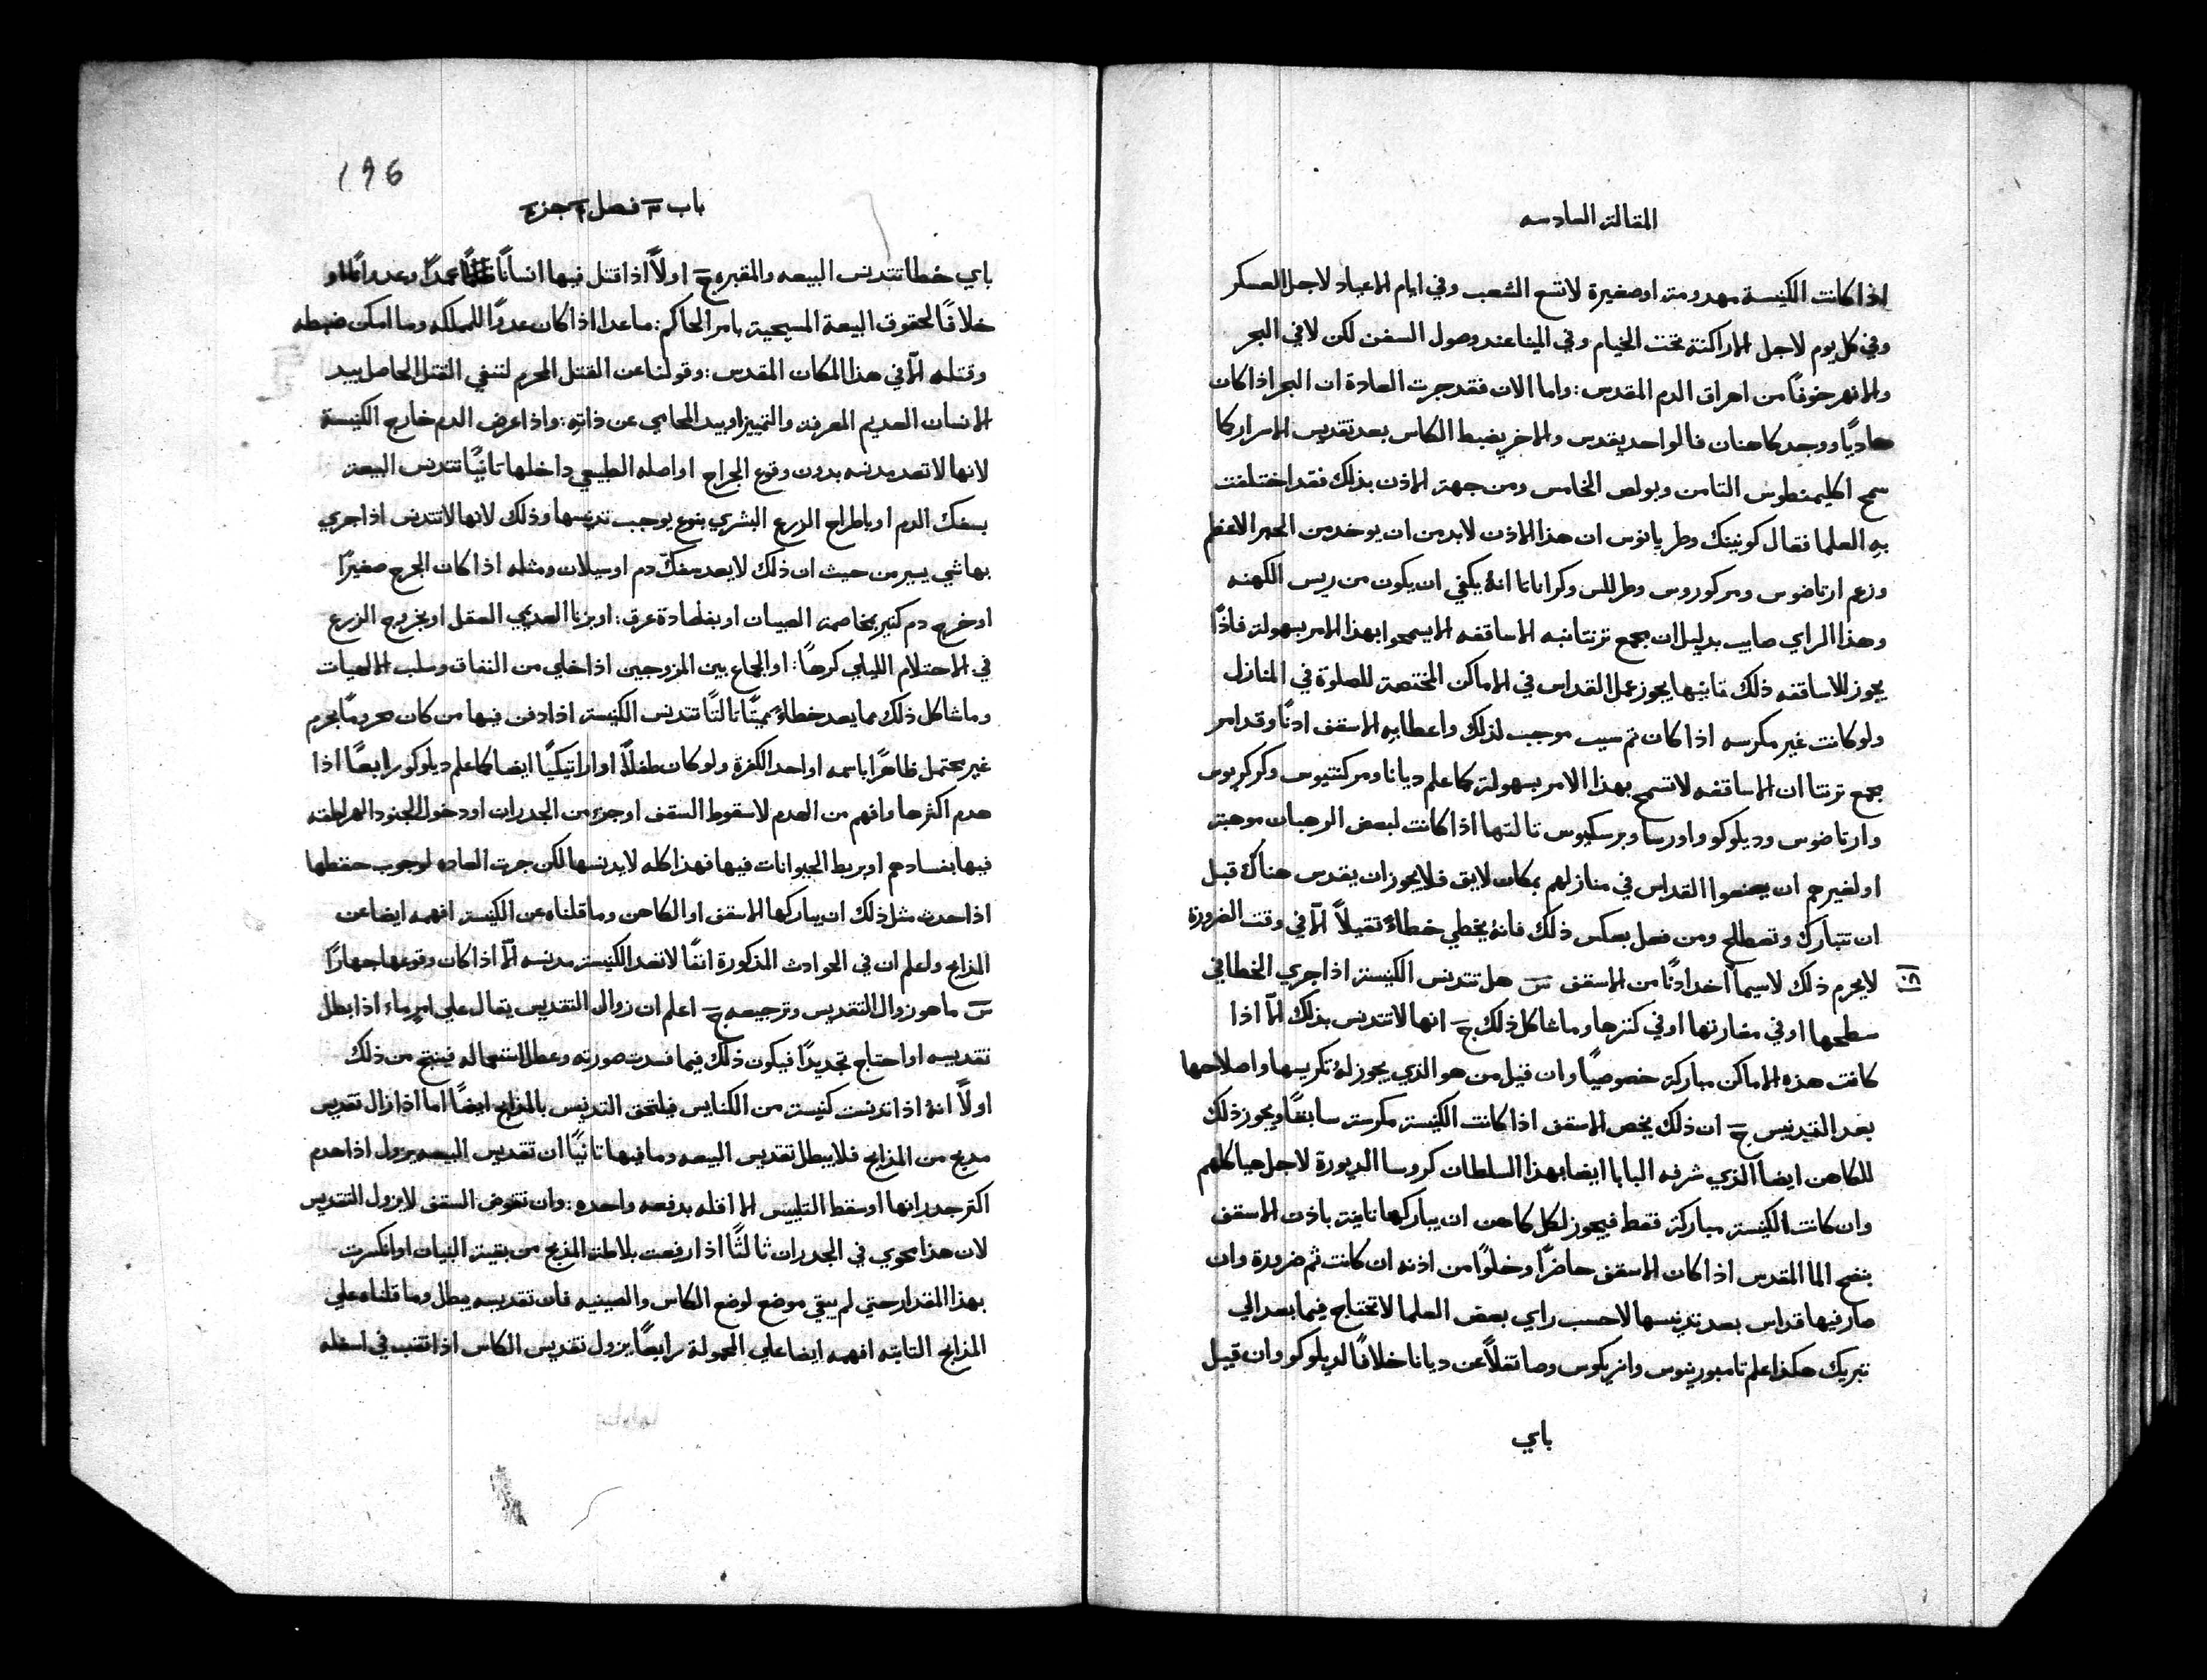 المقالة السادسه
اذا كانت الكنيسة مهدومة او صغيرة لا تسع الشعب وفي ايام الاعياد لاجل العسكر
وفي كل يوم لاجل الاراكنة تحت الخيام وفي المينا عند وصول السفن لكن لا في البحر
والانهر خوفًا من اهراق الدم المقدس: واما الان فقد جرت العادة ان البحر اذا كان
هاديًا ووجد كاهنان فالواحد يقدس والاخر يضبط الكاس بعد تقديس الاسرار كما
سمح اكليمنطوس الثامن وبولص الخامس ومن جهة الاذن بذلك فقد اختلفت
به العلما فقال كونينك وطريانوس ان هذا الاذن لابد من ان يوخد من الحبر الاعظم
وزعم ارتاضوس ومركوروس وطرللس وكراناتا انهُ يكفي ان يكون من ريس الكهنه
وهذا الراي صايب بدليل ان مجمع ترنتا نبه الاساقفه الا يسمحوا بهذا الامر بسهولة فاذًا
يجوز للاساقفه ذلك ثانيها يجوز عمل القداس في الاماكن المختصة للصلوة في المنازل
ولو كانت غير مكرسه اذا كان ثم سبب موجب لذلك واعطا به الاسقف اذنًا وقد امر
مجمع ترنتا ان الاساقفه لا تسمح بهذا الامر بسهولة كما علم ديانا ومركنتيوس وكركريوس
وارتاضوس وديلوكو واورسا وبرسكيوس ثالثها اذا كانت لبعض الرهبان موهبة
او لغيرهم ان يصنعوا القداس في منازلهم بمكان لايق فلا يجوز ان يقدس هناك قبل
ان تتبارك وتصطلح ومن فعل بعكس ذلك فانهُ يخطي خطاءً ثقيلاً الّا في وقت الضرورة
لا يحرم ذلك لاسيما اخذ اذنًا من الاسقف س هل تتدنس الكنيسة اذا جري الخطا في
سطحها او في مغارتها او في كنزها وما شاكل ذلك ج انها لا تتدنس بذلك الّا اذا
كانت هذه الاماكن مباركة خصوصيًا وان قيل من هو الذي يجوز لهُ تكريسها واصلاحها
بعد التدنيس ج ان ذلك يخص الاسقف اذا كانت الكنيسة مكرسة سابقًا ويجوز ذلك
للكاهن ايضا الذي شرفه البابا ايضا بهذا السلطان كروسا الديورة لاجل هياكلهم
وان كانت الكنيسة مباركة فقط فيجوز لكل كاهن ان يباركها ثانية باذن الاسقف
بنضح الما المقدس اذا كان الاسقف حاضرًا وخلوًا من اذنه ان كانت ثم ضرورة وان
صار فيها قداس بعد تدنيسها لا حسب راي بعض العلما لا تحتاج فيما بعد الي
تبريك هكذا علم تامبورينوس وانريكوس وصا نقلاً عن ديانا خلافًا لديلوكو وان قيل
باي
١٨
196
باب ٣ فصل ٢ جزء ٤
باي خطا تتدنس البيعه والمقبره ج اولاً اذا قتل فيها انسانًا عمدًا وعدوانًا او
خلافًا لحقوق البيعة المسيحية بامر الحاكم: ماعدا اذا كان عدوًا للمملكه وما امكن ضبطه
وقتله الّا في هذا المكان المقدس: وقولنا عن القتل المحرم لتنفي القتل الحاصل بيد
الانسان العديم المعرفة والتمييز او بيد المحامي عن ذاته: واذا عرض الدم خارج الكنيسة
لانها لا تعد مدنسه بدون وقوع الجراح او اصله الطبيعي داخلها ثانيًا تتدنس البيعة
بسفك الدم او باطراح الزرع البشري بنوع يوجب تدنيسها وذلك لانها لا تتدنس اذا جري
بها شي يسير من حيث ان ذلك لا يعد سفك دم او سيلان ومثله اذا كان الجرح صغيرًا
او خرج دم كثير بمخاصمة الصبيان او بفصادة عرق: او بزنا العديمي العقل او بخروج الزرع
في الاحتلام الليلي كرهًا: او الجماع بين المزوجين اذا خلي من النفاق وسلب الالهيات
وما شاكل ذلك مما يعد خطاءً مميتًا ثالثًا تتدنس الكنيسة اذا دفن فيها من كان محرومًا بحرم
غير محتمل ظاهرًا باسمه او احد الكفرة ولو كان طفلاً او اراتيكيًا ايضا كما علم ديلوكو رابعًا اذا
هدم اكثرها وافهم من الهدم لا سقوط السقف او جزء من الجدران او دخول الجنود الهراطقه
فيها بفسادهم او بربط الحيوانات فيها فهذا كله لا يدنسها لكن جرت العاده لوجوب حفظها
اذا حدث مثل ذلك ان يباركها الاسقف او الكاهن وما قلناه عن الكنيسة افهمه ايضا عن
المذابح واعلم ان في الحوادث المذكورة انفًا لا تعد الكنيسة مدنسه الّا اذا كان وقوعها جهارًا
س ما هو زوال التقديس وترجيعه ج اعلم ان زوال التقديس يقال علي امرماء اذا بطل
تقديسه او احتاج تجديدًا فيكون ذلك فيما فسدت صورته وعطل استعماله فينتج من ذلك
اولاً انهُ اذا تدنست كنيسة من الكنايس فيلتحق التدنيس بالمذابح ايضًا اما اذا زال تقديس
مذبح من المذابح فلا يبطل تقديس البيعه وما فيها ثانيًا ان تقديس البيعه يزول اذا هدم
اكثر جدرانها او سقط التلبيس الا اقله بدفعه واحده: وان تقوض السقف لا يزول التقديس
لان هذا محوي في الجدران ثالثًا اذا رفعت بلاطة المذبح من بقية البنيان او انكسرت
بهذا المقدار حتي لم يبقي موضع لوضع الكاس والصينيه فان تقديسه يبطل وما قلناه علي
المذابح الثابته افهمه ايضا علي المحمولة رابعًا يزول تقديس الكاس اذا تثقب في اسفله